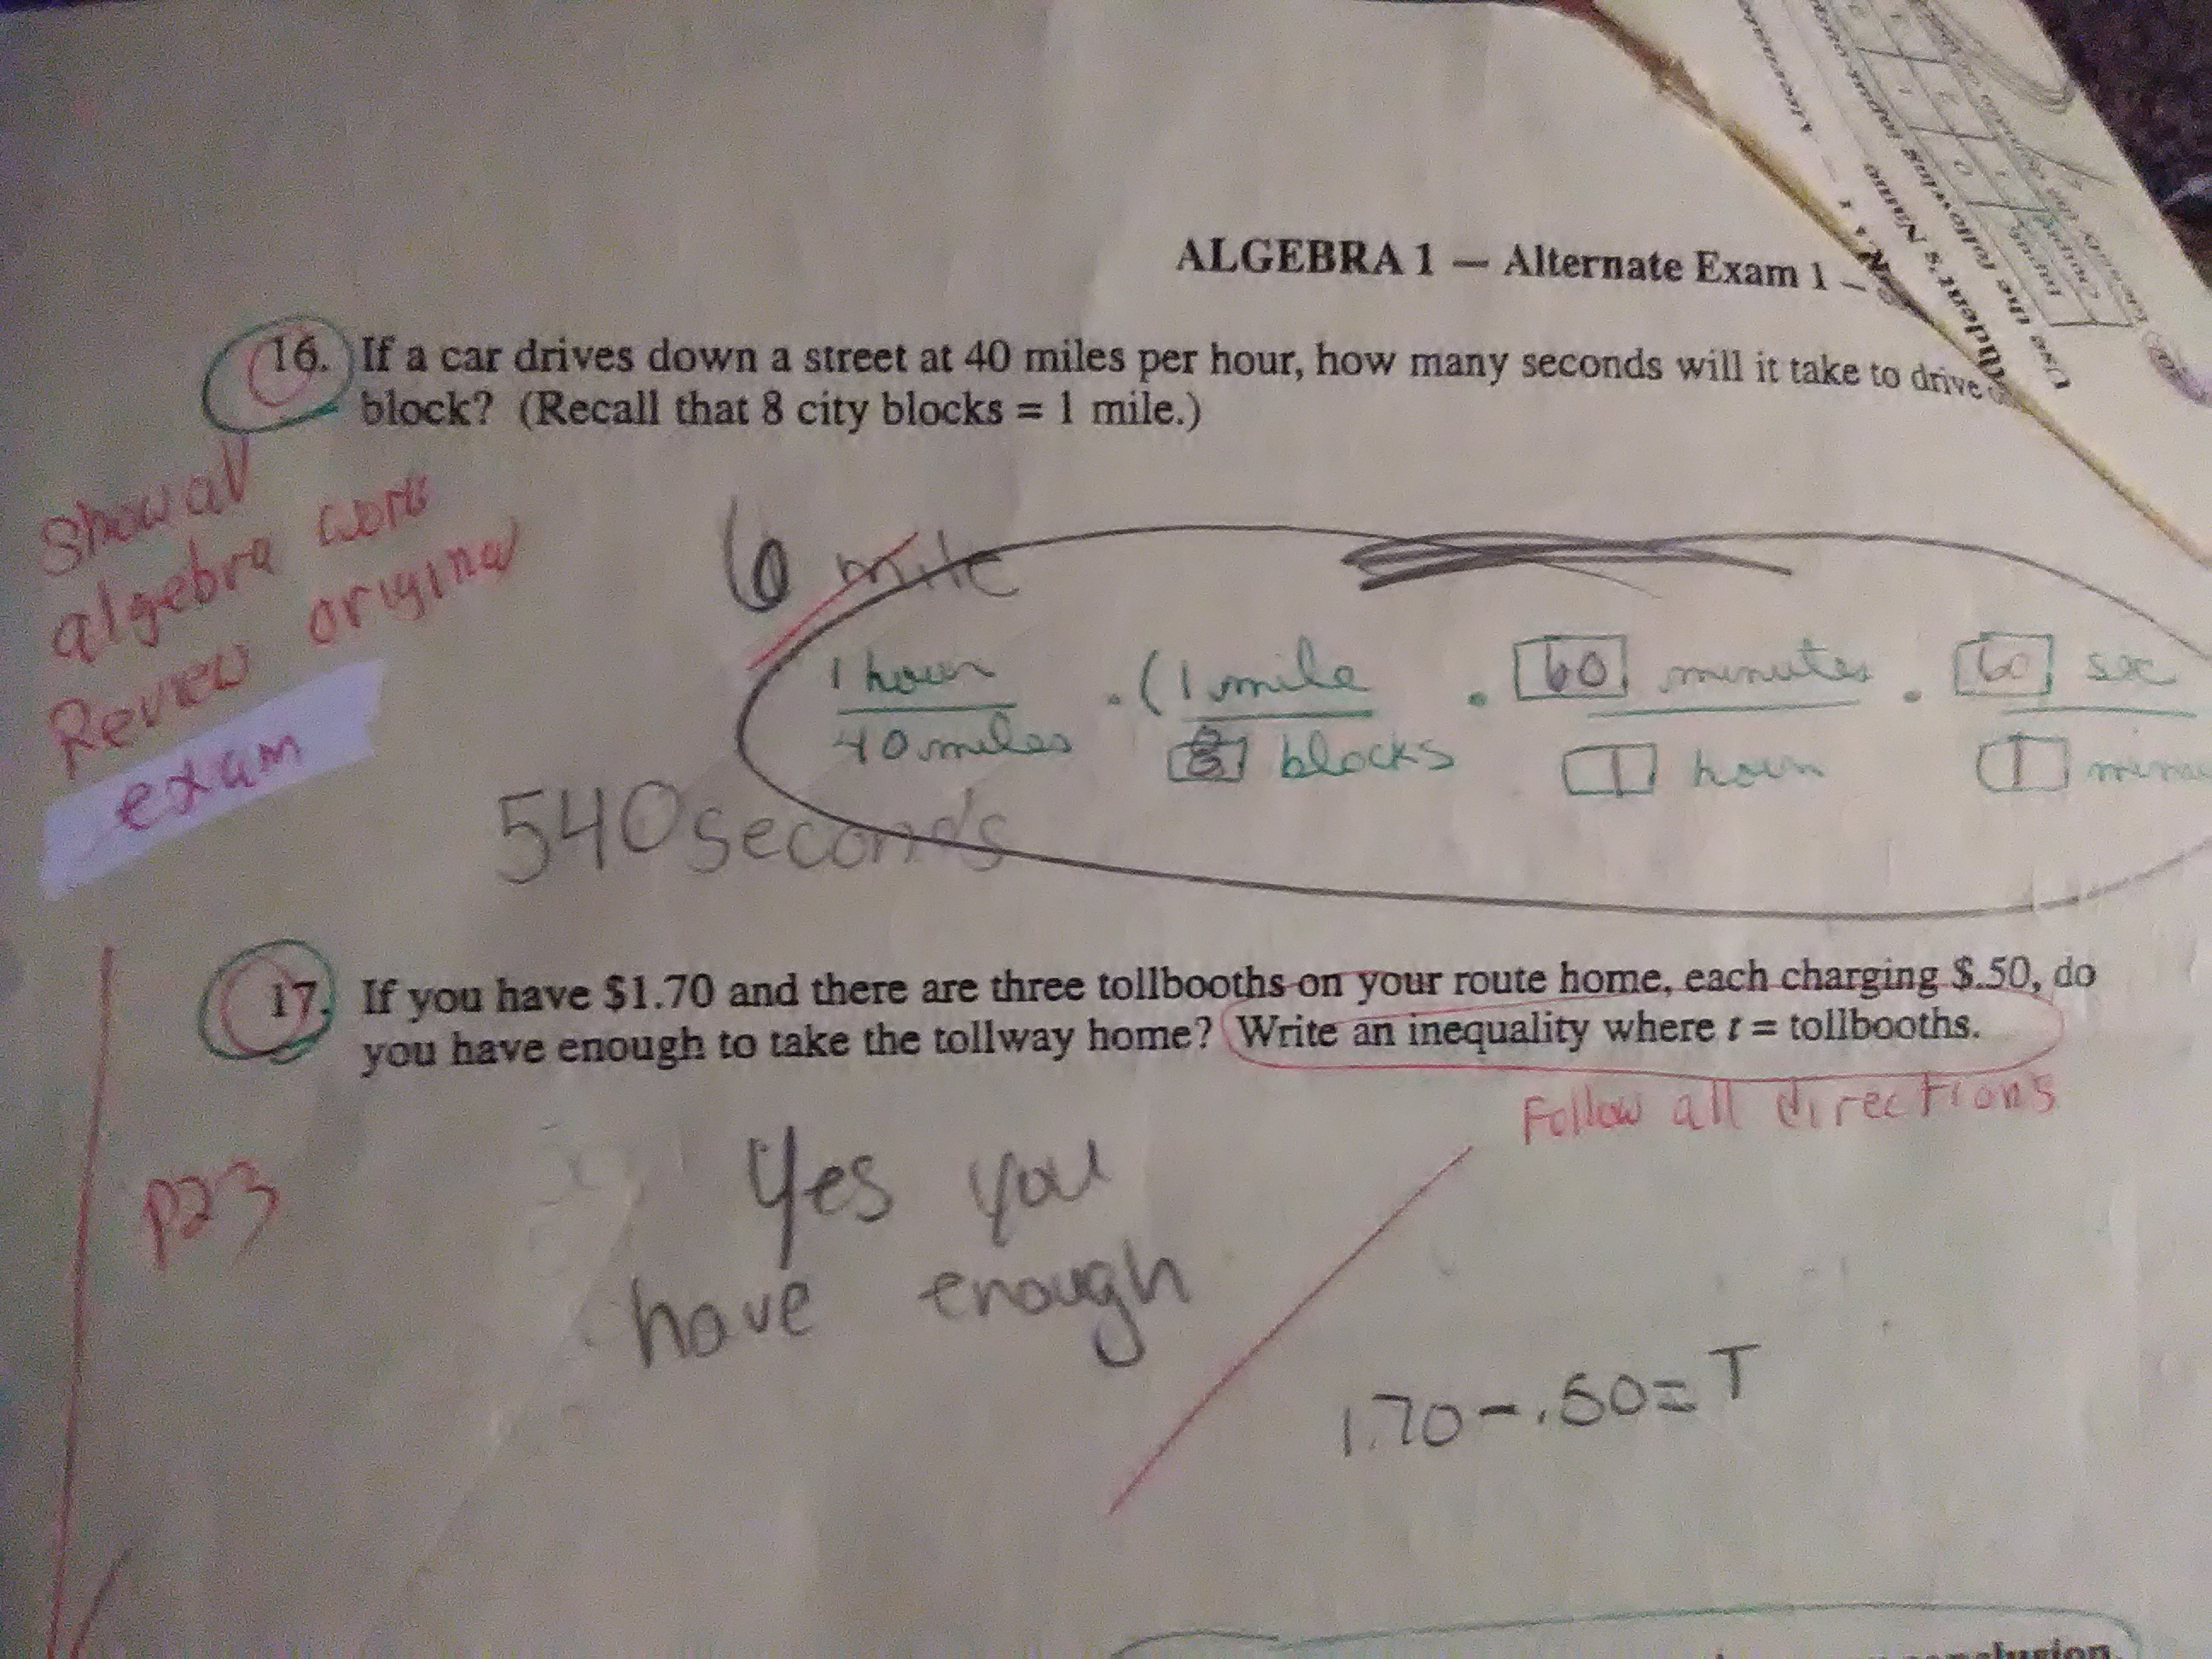 ALGEBRA 1 — Alternate Exam 1 –
16. If a car drives down a street at 40 miles per hour, how many seconds will it take to drive
block? (Recall that 8 city blocks = 1 mile.)
Show all
algebra work
Review original
exam
6 mile
1 hour / 40 miles · (1 mile / 8 blocks · 60 minutes / 1 hour · 60 sec / 1
540 seconds
17. If you have $1.70 and there are three tollbooths on your route home, each charging $.50, do
you have enough to take the tollway home? Write an inequality where t = tollbooths.
Follow all directions
P23
Yes you
have enough
1.70 - .50 = T
Student's Name
Use the following input